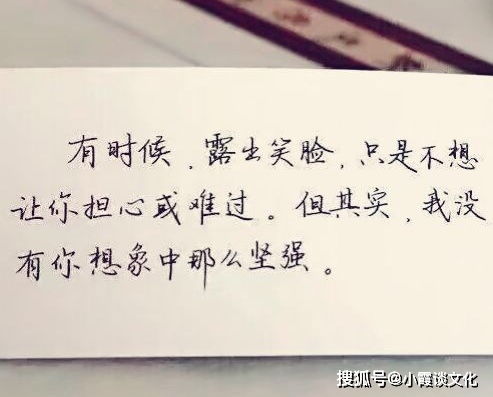 有时候，露出笑脸，只是不想
让你担心或难过。但其实，我没
有你想象中那么坚强。
搜狐号@小霞谈文化